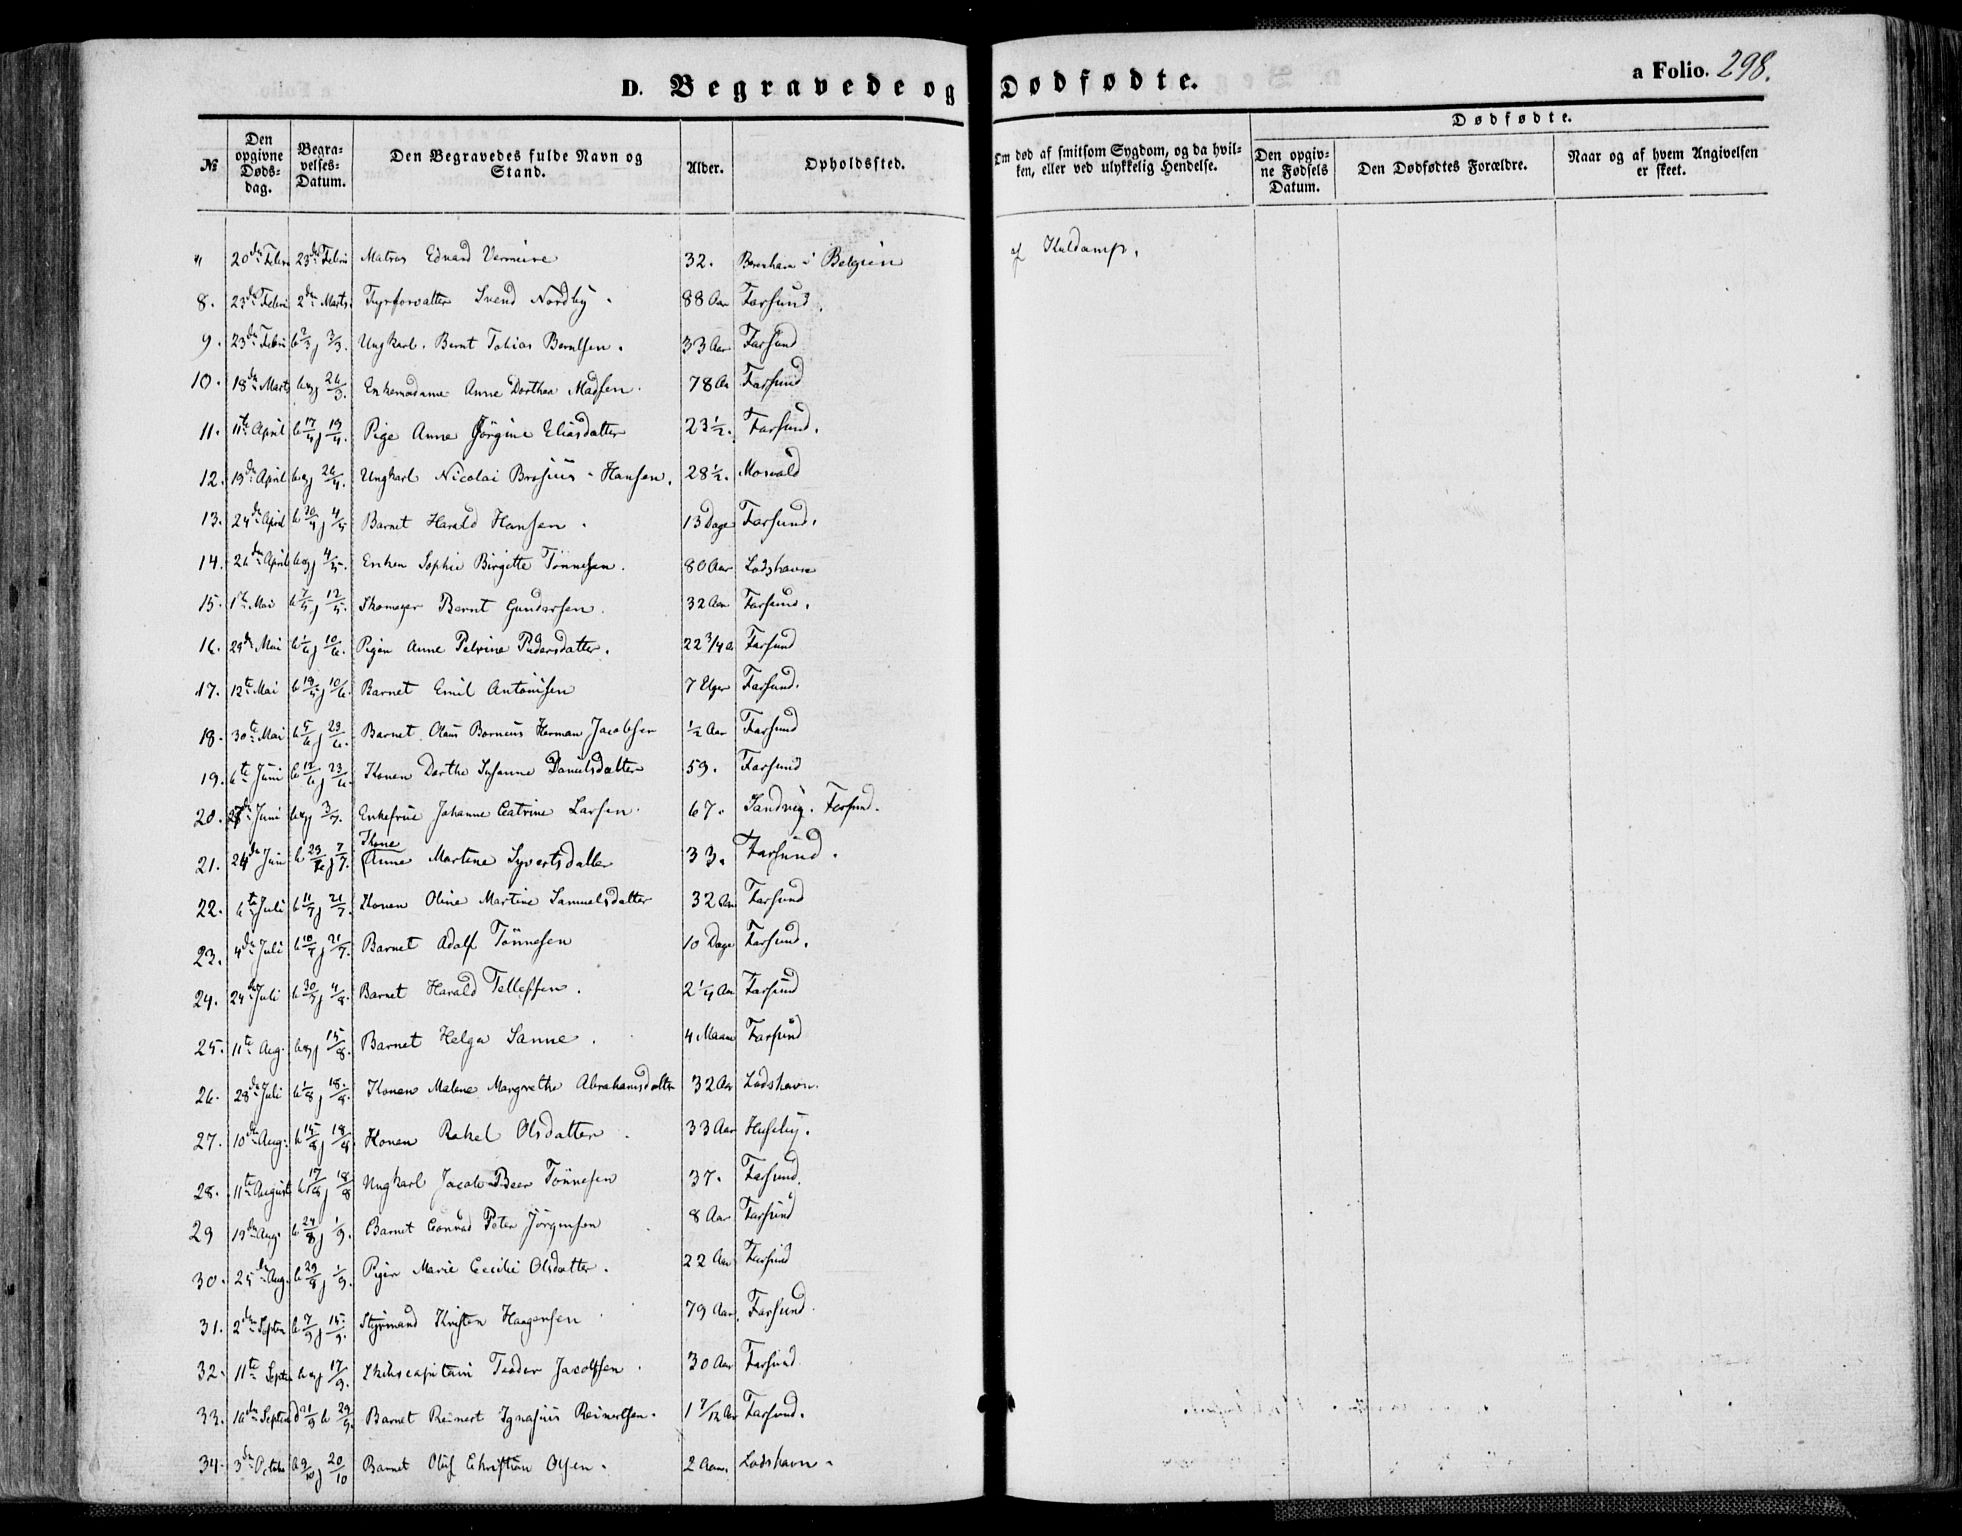 D. Begravede og Dødfødte.
a Folio. 298.
№ | Den opgivne Døds-dag. | Begra-velses-Datum. | Den Begravedes fulde Navn og Stand. | Alder. | Opholdssted. | Om død af smitsom Sygdom, og da hvil-ken, eller ved ulykkelig Hendelse. | Dødfødte. | Den opgiv-ne Fødsels Datum. | Den Dødfødtes Forældre. | Naar og af hvem Angivelsen er skeet.
" 20de Febr 23de Febr Matros Eduard Vermeire 32. i Belgien af Kuldamp.
8. 23de Febr 2den Marts Fyrforvalter Svend Nordby. 88 Aar Farsund.
9. 23de Febr b 2/3 j 3/3. Ungkarl. Bernt Tobias Berntsen. 33 Aar Farsund
10. 18de Marts b og j 26/3. Enkemadame Anne Dorthea Madsen. 78 Aar Farsund
11. 11te April b 17/4 j 19/4. Pige Anne Jørgine Eliasdatter 23 1/2. Farsund.
12. 19de April b og j 26/4. Ungkarl Nicolai Brosius Hansen. 28 1/2. Mosvald
13. 24de April b 30/4 j 4/5 Barnet Harald Hansen. 13 Dage Farsund.
14. 26de April b og j 4/5. Enken Sophie Birgitte Tönnesen. 80 Aar Lodshavn
15. 1te Mai b 7/5 j 12/5. Skomager Bernt Gundersen. 32 Aar Farsund.
16. 29de Mai b 1/6 j 10/6. Pigen Anne Petrine Pedersdatter. 22 3/4 a Farsund
17. 12te Mai b 19/5 j 10/6. Barnet Emil Antonisen 7 Uger Farsund.
18. 30te Mai b 5/6 j 23/6. Barnet Olaus Borneus Herman Jacobsen 1/2 Aar Farsund
19. 6te Juni b 12/6 j 23/6. Konen Dorthe Susanne Danielsdatter 59. Farsund
20. 27de Juni b og j 3/7. Enkefrue Johanne Catrine Larsen. 67. Sandvig. Farsund.
21. 24de Juni b 29/6 j 7/7. Kone Anne Martine Syvertsdatter 33. Farsund.
22. 6te Juli b 11/7 j 21/7. Konen Oline Martine Samuelsdatter 32 Aar Farsund
23. 4de Juli b 10/7 j 21/7. Barnet Adolf Tönnesen 10 Dage Farsund.
24. 24de Juli b 30/7 j 4/8. Barnet Harald Tellefsen. 2 1/4 Aar Farsund
25. 11te Aug. b og j 15/8. Barnet Helga Sanne. 4 Maan Farsund
26. 28de Juli b 1/8 j 18/8. Konen Malene Margrethe Abrahamsdatter 32 Aar Lodshavn.
27. 10de Aug. b 15/8 j 18/8 Konen Rakel Olsdatter. 33 Aar Huseby.
28. 11te August b 17/8 j 18/8 Ungkarl Jacob Beer Tönnesen 37. Farsund.
29 19de Aug. b 24/8 j 1/9. Barnet Conrad Peter Jörgensen 8 Aar Farsund
30. 25de Aug. b 29/8 j 1/9. Pigen Marie Cecilie Olsdatter. 22 Aar Farsund
31. 2den Septbr b 7/9 j 15/9. Styrmand Kristen Haagensen 79 Aar. Farsund.
32. 11te Septbr b og j 17/9. Skibscapitain Teodor Jacobsen. 30 Aar Farsund
33. 16de Septbr 21/9 b 29/9. Barnet Reinert Ignasius Reinertsen. 1 7/12 Aar Farsund.
34. 3de Octobr b 9/10 j 20/10 Barnet Oluf Christian Olsen. 2 Aar. Lodshavn.